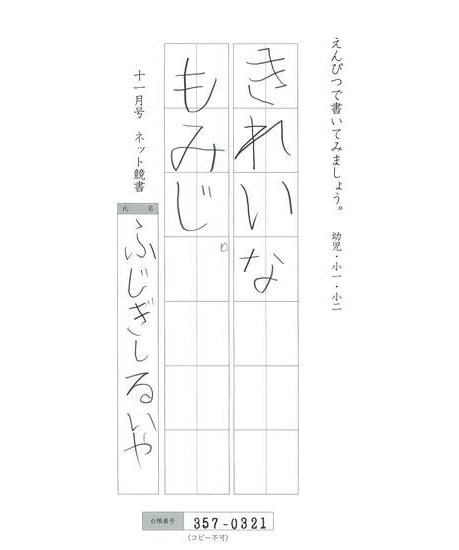 えんぴつで書いてみましょう。 幼児・小一・小二
きれいな
もみじ
十一月号 ネット競書
氏名
ふじぎしるいや
台帳番号 357-0321
(コピー不可)